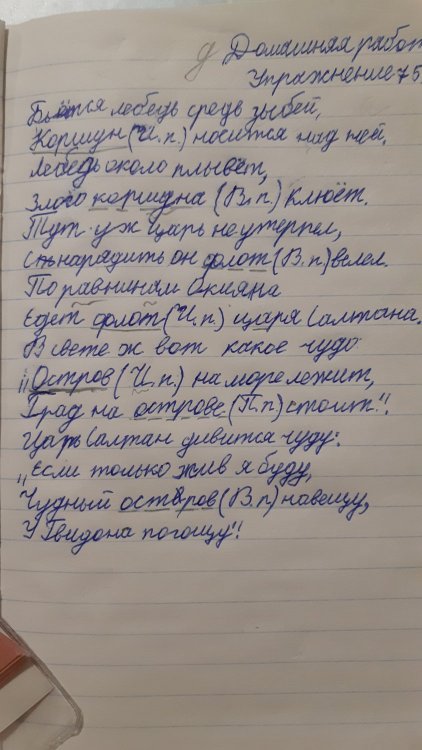 Домашняя работ
Упражнение 75
Бьётся лебедь средь зыбей,
Коршун (И.п.) носится над ней.
Лебедь около плывёт,
Злого коршуна (В.п) клюёт.
Тут уж царь не утерпел,
Снарядить он флот (В.п) велел.
По равнинам Окияна
Едет флот (И.п) царя Салтана.
В свете ж вот какое чудо:
„Остров (И.п.) на море лежит,
Град на острове (П.п) стоит".
Царь Салтан дивится чуду:
„Если только жив я буду,
Чудный остров (В.п) навещу,
У Гвидона погощу"!